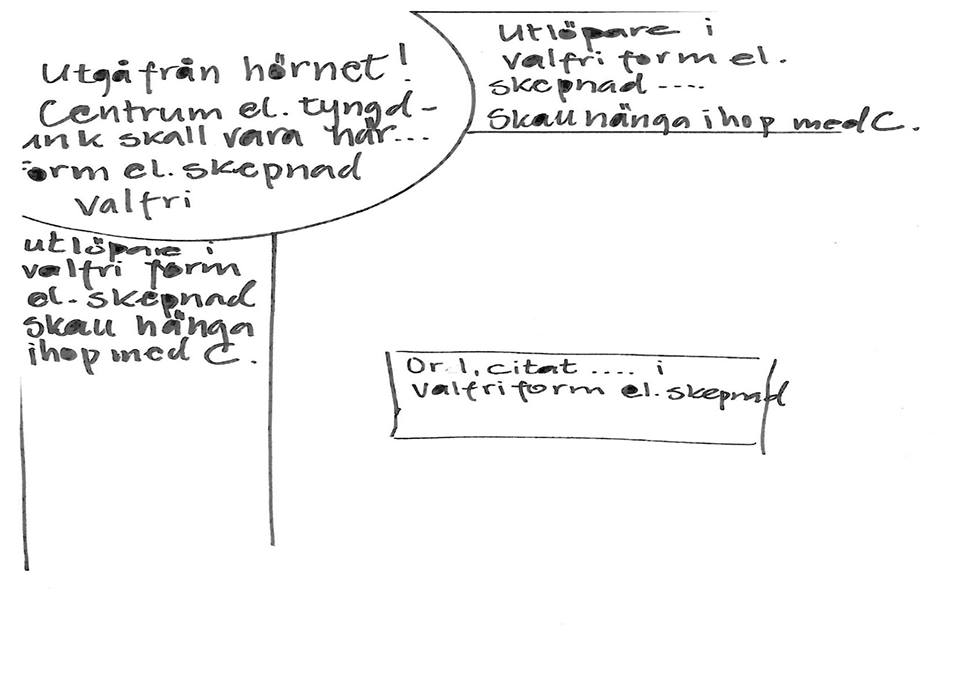 Utgå från hörnet!
Centrum el. tyngd-
skall vara här...
orm el. skepnad
valfri
Utlöpare i
valfri form el.
skepnad ....
Skall hänga ihop med C.
utlöpare i
valfri form
el. skepnad
skall hänga
ihop med C.
Ord, citat .... i
valfri form el. skepnad